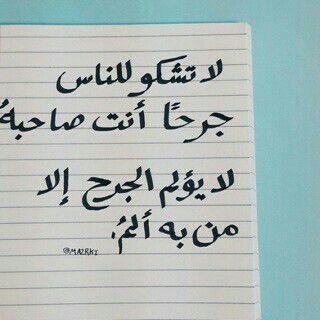 لا تشكو للناس
جرحًا أنت صاحبهُ
لا يؤلم الجرح إلا
من به ألمُ.
@MAJRKS